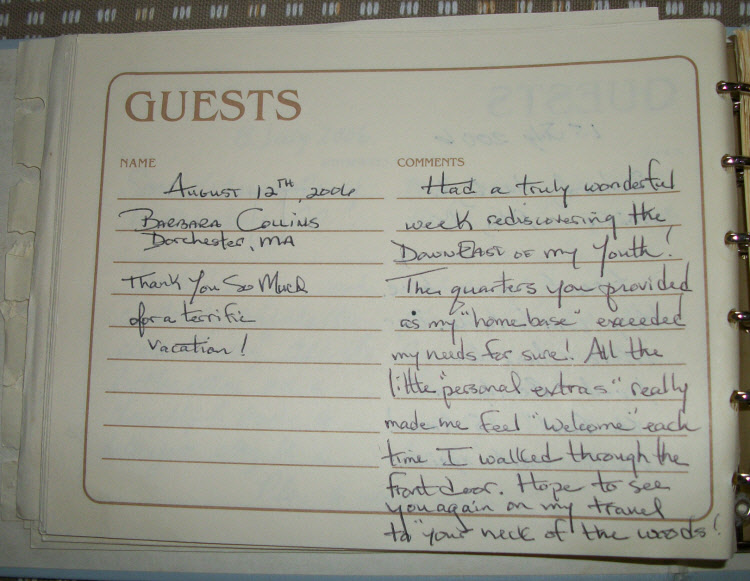 GUESTS
NAME
August 12TH, 2006
Barbara Collins
Dorchester, MA
Thank You So Much
for a terrific
vacation!
COMMENTS
Had a truly wonderful
week rediscovering the
DownEast of my Youth!
The quarters you provided
as my "home base" exceeded
my needs for sure! All the
little "personal extras" really
made me feel "welcome" each
time I walked through the
front door. Hope to see
you again on my travel
to "your neck of the woods!